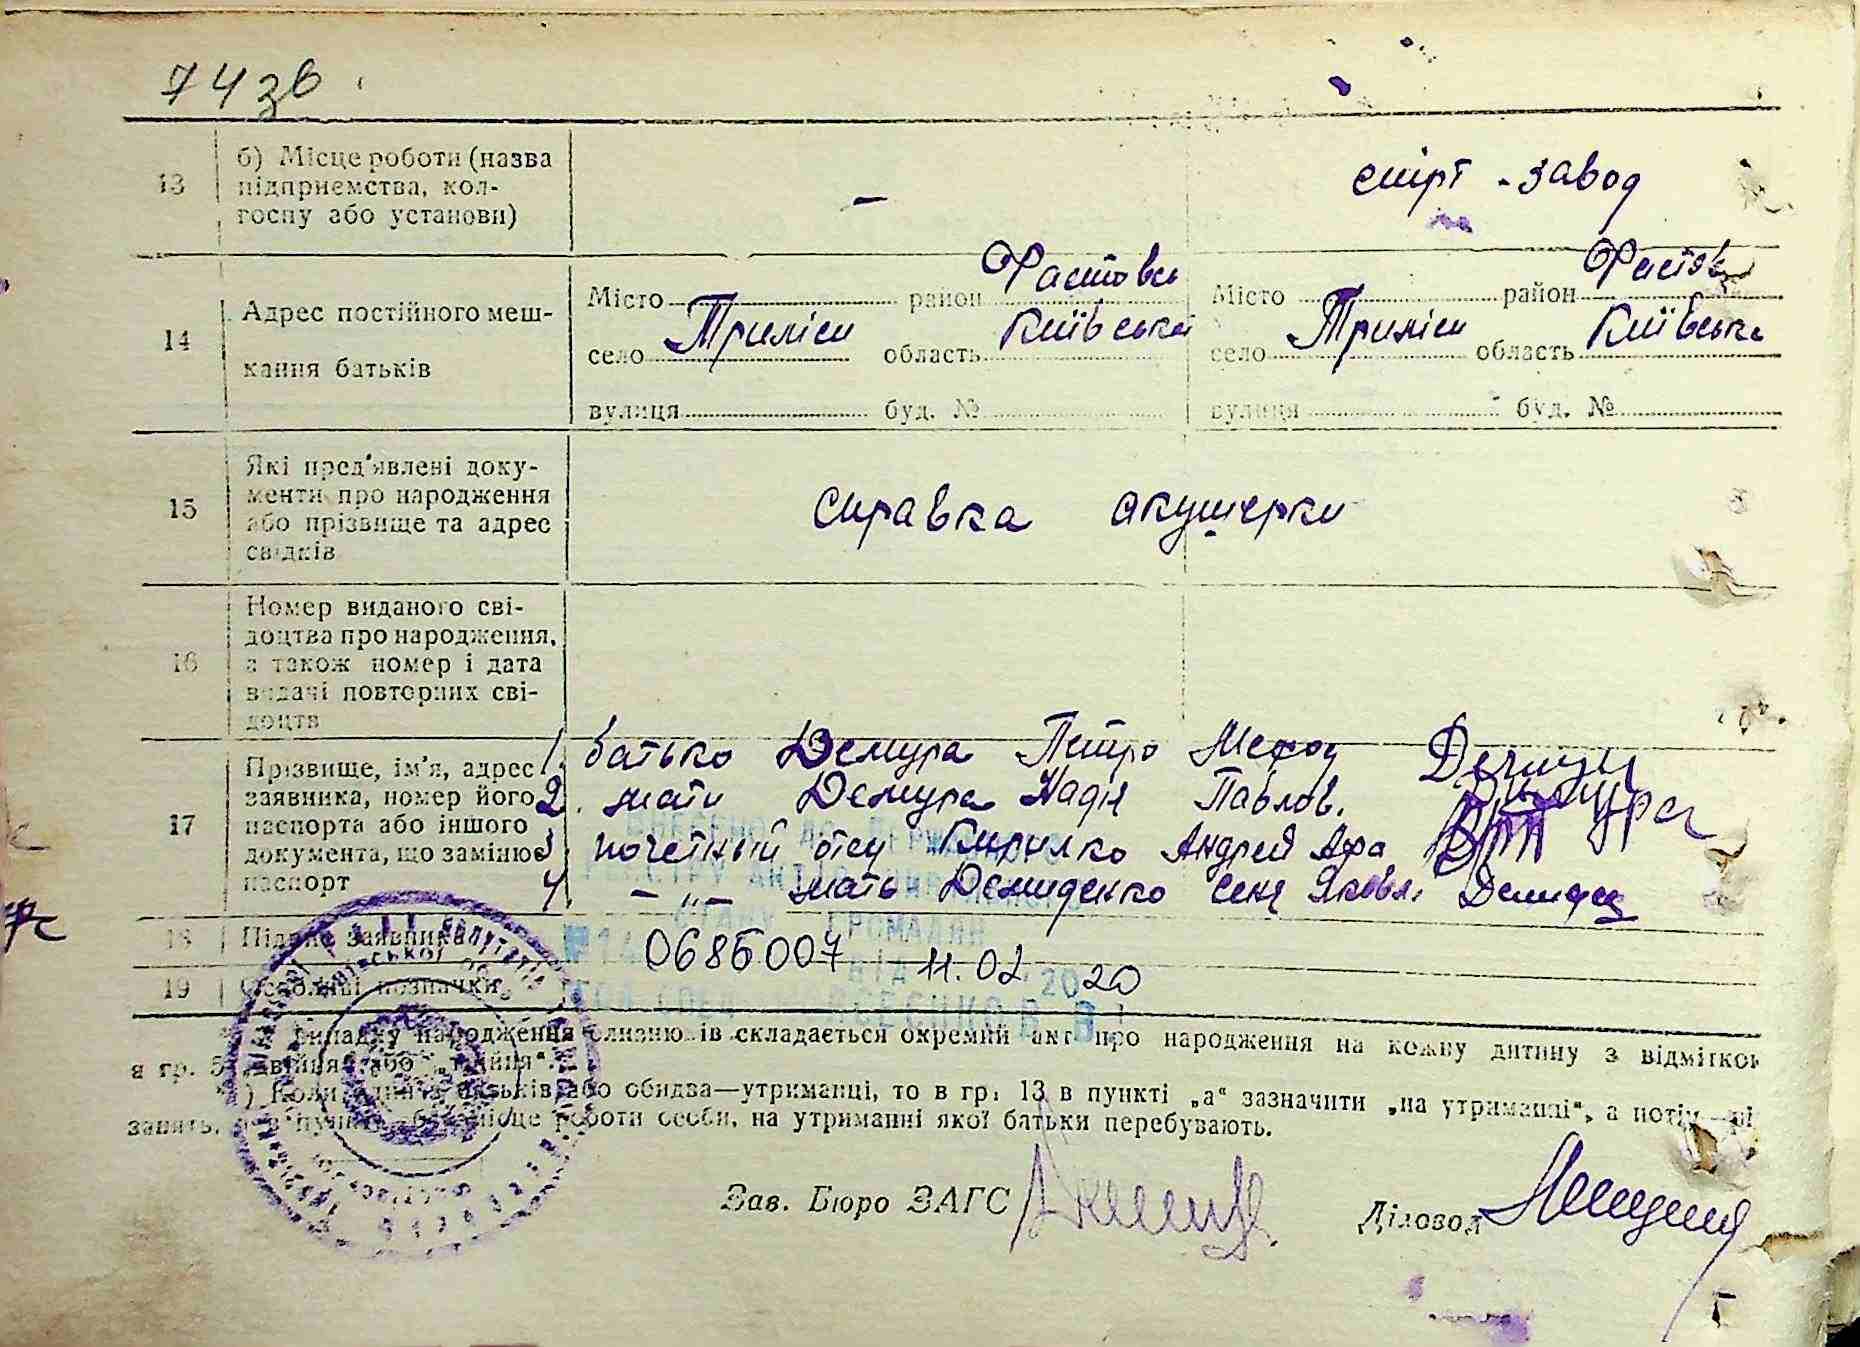 74зв
13 б) Місце роботи (назва підприємства, кол-
госпу або установи)
— спирт-завод
14 Адрес постійного меш-
кання батьків
Місто район Фастовсь Місто район Фастів
село Триліси область Київська село Триліси область Київська
вулиця буд. № вулиця буд. №
15 Які пред'явлені доку-
менти про народження
або прізвище та адрес
свідків
справка акушерки
16 Номер виданого сві-
доцтва про народження,
а також номер і дата
видачі повторних сві-
доцтв
17 Прізвище, ім'я, адрес
заявника, номер його
паспорта або іншого
документа, що замінює
паспорт
1. батько Демура Петро Мефод
2. мати Демура Надія Павлов. Демура
3. почетный отец Кирилко Андрей Афа
4. — „ — мать Демиденко Сеня Яковл. Демиден
18 Підпис заявника
19 Особливі позначки
ВНЕСЕНО ДО ДЕРЖАВНОГО
РЕЄСТРУ АКТІВ ЦИВІЛЬНОГО
СТАНУ ГРОМАДЯН
№ 14 0685007 ВІД 11.02 2020
ГОЛ. СПЕЦ.
випадку народження близнюків складається окремий акт про народження на кожну дитину з відміткою
в гр. 5 „двійня“ або „трійня“.
) Коли один з батьків або обидва—утриманці, то в гр. 13 в пункті „а“ зазначити „на утриманні“, а потім
занять, а в пункті „б“ місце роботи особи, на утриманні якої батьки перебувають.
Зав. Бюро ЗАГС Діловод